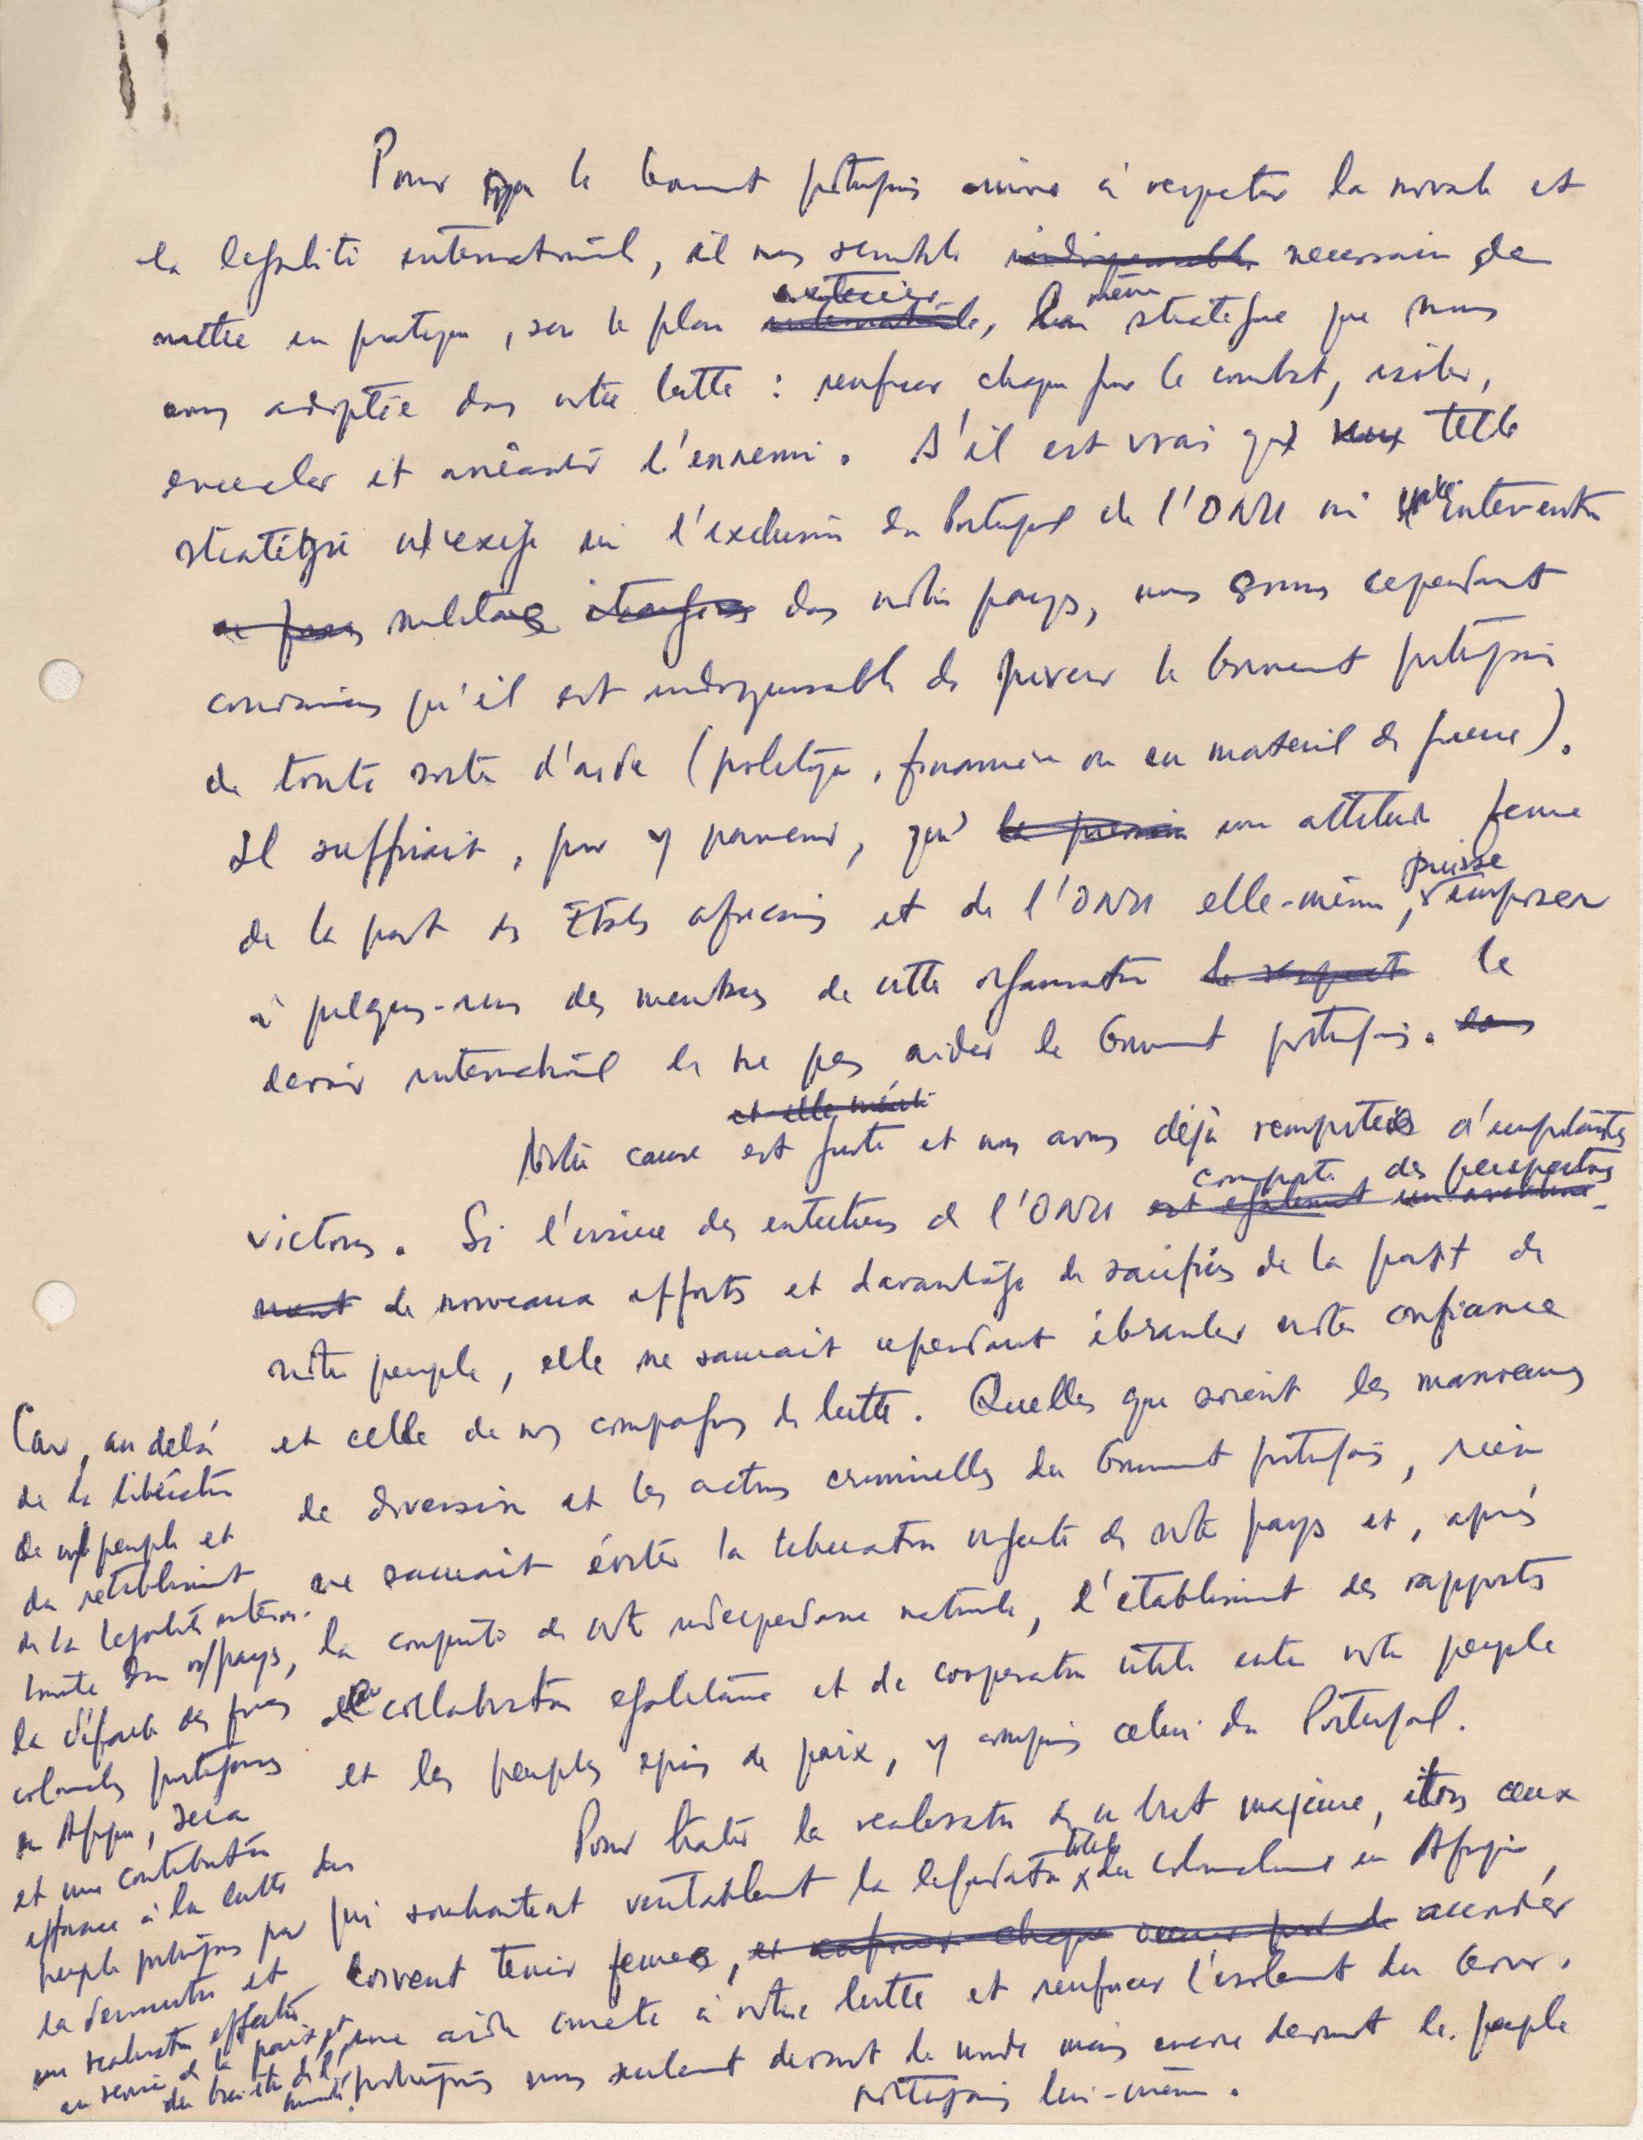 Pour que le Gouvernement portugais arrive à respecter la morale et
la légalité internationale, il nous semble indispensable nécessaire de
mettre en pratique, sur le plan internationale, extérieur, la même stratégie que nous
avons adoptée dans notre lutte : renforcer chaque jour le combat, isoler,
encercler et anéantir l'ennemi. S'il est vrai que telle
stratégie n'exige ni l'exclusion du Portugal de l'ONU ni une intervention
militaire étrangère dans notre pays, nous sommes cependant
convaincus qu'il est indispensable de priver le Gouvernement portugais
de toute sorte d'aide (politique, financière ou en matériel de guerre).
Il suffirait, pour y parvenir, qu' une attitude ferme
de la part des États africains et de l'ONU elle-même, puisse imposer
à quelques-uns des membres de cette organisation le respect le
devoir international de ne pas aider le Gouvernement portugais.
et elle mérite
Notre cause est juste et nous avons déjà remporté d'importantes
victoires. Si l'issue des entretiens de l'ONU est également comporte des perspectives
de nouveaux efforts et davantage de sacrifices de la part de
notre peuple, elle ne saurait cependant ébranler notre confiance
et celle de nos compagnons de lutte. Quelles que soient les manoeuvres
de diversion et les actions criminelles du Gouvernement portugais, rien
ne saurait éviter la libération urgente de notre pays et, après
la conquête de notre indépendance nationale, l'établissement des rapports
de collaboration égalitaire et de coopération utile entre notre peuple
et les peuples épris de paix, y compris celui du Portugal.
Pour hater la réalisation de ce but majeur, tous ceux
qui souhaitent véritablement la liquidation totale du colonialisme en Afrique,
doivent tenir fermes, et renforcer chaque accorder
une aide concrète à notre lutte et renforcer l'isolement du Gouv.
portugais non seulement devant le monde mais encore devant le peuple
portugais lui-même.
Car, au delà
de la libération
de notre peuple et
du rétablissement
de la légalité interna-
dans notre pays,
la défaite des forces
coloniales portugaises
en Afrique, sera
et une contribution
efficace à la lutte du
peuple portugais pour
la démocratie et
une réalisation effective
au service de la paix et
du bien-être de